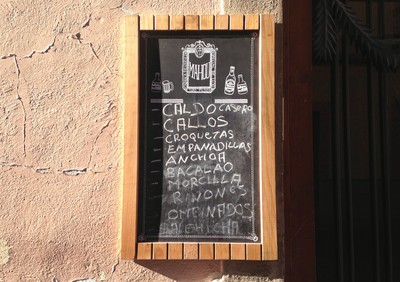 MAHOU
CALDO CASERO
CALLOS
CROQUETAS
EMPANADILLAS
ANCHOA
BACALAO
MORCILLA
RIÑONES
COMBINADOS